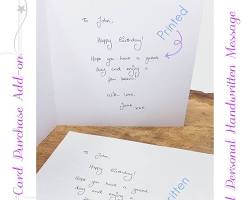 To John,
Happy Birthday!
Hope you have a great
day and enjoy a
few beers!
With love,
Jane xxx
Printed
To John
Happy Birthday!
Hope you have a great
day and enjoy a
written
Card Purchase Add-on
Personal Handwritten Message